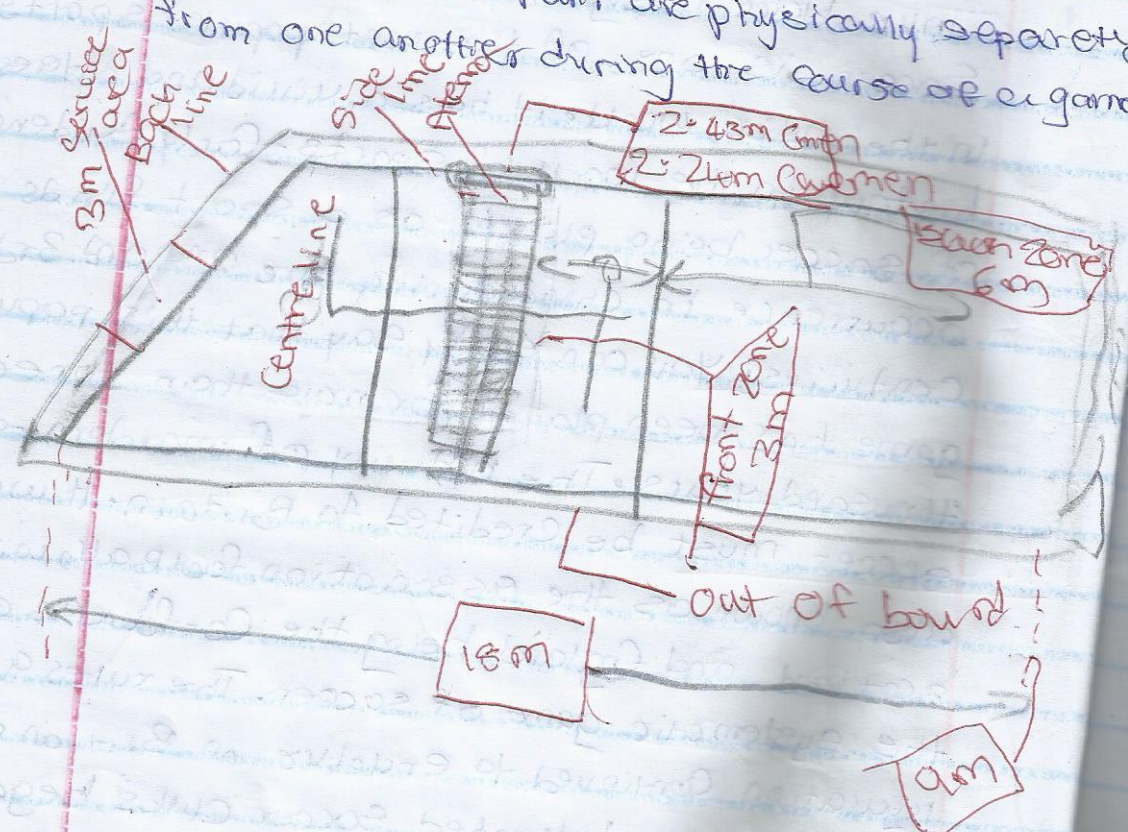 are physically separety
from one another during the course of a game
3m service
area
Back
line
Side
line
Antenna
2.43m (men
2.24m (women
Centre line
6m
Front zone
3m
Out of bound
18m
9m